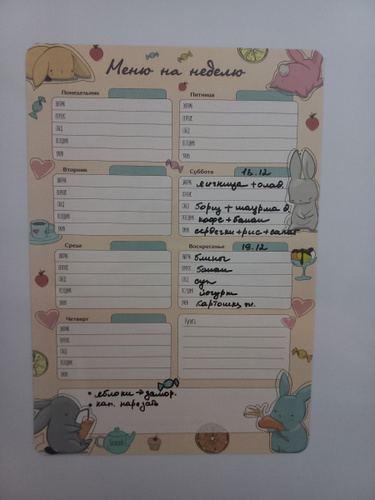 Меню на неделю
Понедельник
ЗАВТРАК
ПЕРЕКУС
ОБЕД
ПОЛДНИК
УЖИН
Вторник
ЗАВТРАК
ПЕРЕКУС
ОБЕД
ПОЛДНИК
УЖИН
Среда
ЗАВТРАК
ПЕРЕКУС
ОБЕД
ПОЛДНИК
УЖИН
Четверг
ЗАВТРАК
ПЕРЕКУС
ОБЕД
ПОЛДНИК
УЖИН
Пятница
ЗАВТРАК
ПЕРЕКУС
ОБЕД
ПОЛДНИК
УЖИН
Суббота 18.12
ЗАВТРАК яичница + олад.
ПЕРЕКУС
ОБЕД борщ + шаурма д.
ПОЛДНИК кофе + банан
УЖИН сердечки + рис + салат
Воскресенье 19.12
ЗАВТРАК блины
ПЕРЕКУС банан
ОБЕД суп
ПОЛДНИК йогурт
УЖИН картошка
• яблоки → замор.
• кап. нарезать